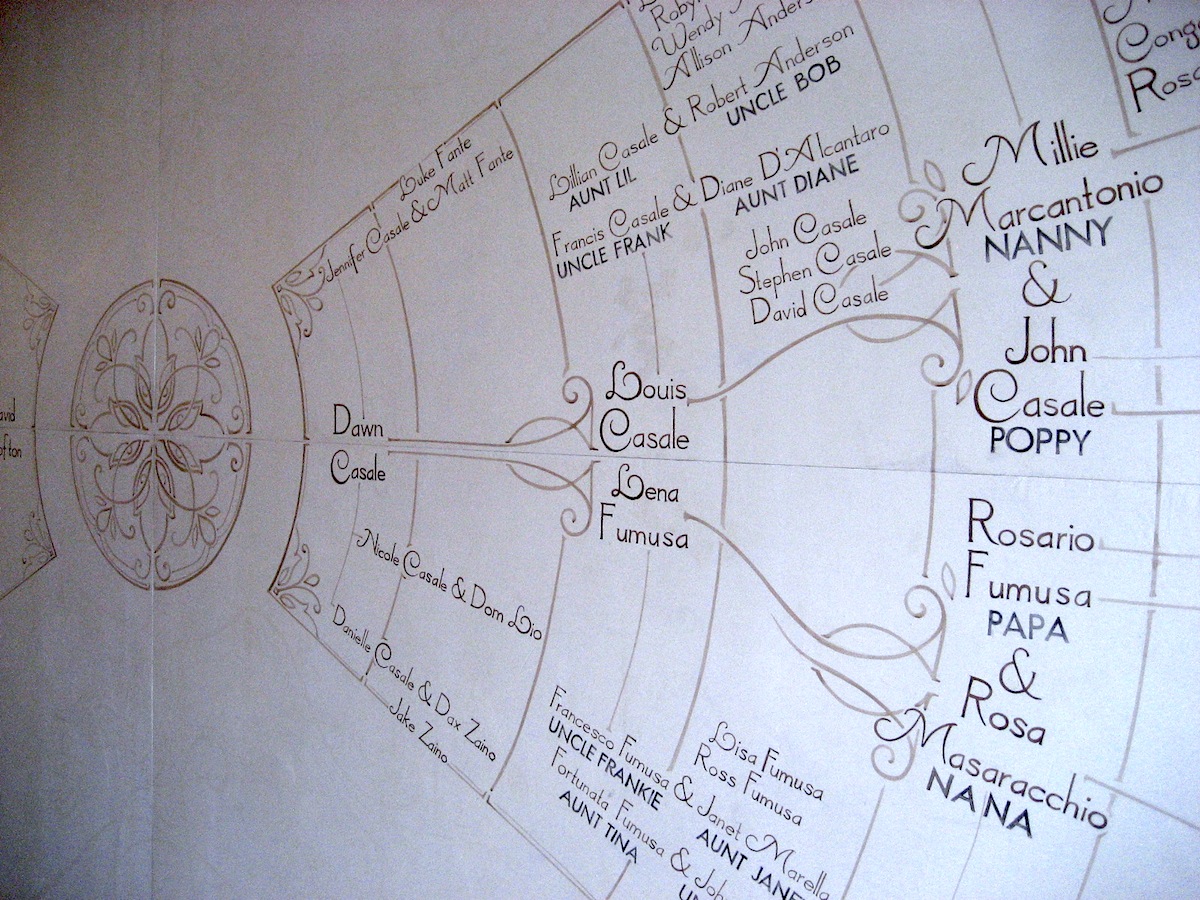 Wendy
Allison Anderson
Lillian Casale & Robert Anderson
AUNT LIL
UNCLE BOB
Francis Casale & Diane D'Alcantaro
UNCLE FRANK
AUNT DIANE
John Casale
Stephen Casale
David Casale
Luke Fante
Jennifer Casale & Matt Fante
Dawn
Casale
Nicole Casale & Dom Lio
Danielle Casale & Dax Zaino
Jake Zaino
Louis
Casale
Lena
Fumusa
Francesco Fumusa & Janet Marella
UNCLE FRANKIE
AUNT JANE
Fortunata Fumusa & John
AUNT TINA
Lisa Fumusa
Ross Fumusa
Millie
Marcantonio
NANNY
&
John
Casale
POPPY
Rosario
Fumusa
PAPA
&
Rosa
Masaracchio
NANA